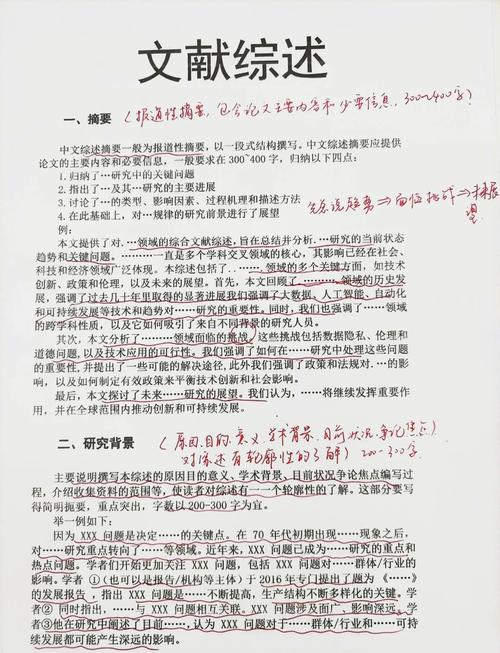 文献综述
一、摘要 （报道性摘要，包含论文主要内容和必要信息，300~400字）
中文综述摘要一般为报道性摘要，以一段式结构撰写。中文综述摘要应提供
论文的主要内容和必要信息，一般要求在300~400字，归纳以下四点：
1.归纳了···研究中的关键问题
2.指出了···及其···研究的主要进展
3.讨论了···的类型、影响因素、过程机理和描述方法
4.在此基础上，对···规律的研究前景进行了展望
先后说趋势⇒面临挑战⇒未来展望
例：
本文提供了对···领域的综合文献综述，旨在总结并分析···研究的当前状态
趋势和关键问题。······一直是多个学科交叉领域的核心，其影响已经在社会、
科技和经济领域广泛体现。本综述包括了······领域的多个关键方面，如技术
创新、政策和伦理，以及未来的展望。首先，本文回顾了······领域的历史发
展，强调了过去几十年里取得的显著进展我们强调了大数据、人工智能、自动化
和可持续发展等技术和趋势对······研究的重要性。同时，我们也强调了······领域
的跨学科性质，以及它如何吸引了来自不同背景的研究人员。
其次，本文分析了······领域面临的挑战，这些挑战包括数据隐私、伦理和
道德问题，以及技术应用的可行性。我们强调了如何在······研究中处理这些问题
的重要性，并提出了一些可能的解决途径，此外我们强调了政策和法规对···的
影响，以及如何制定有效政策来平衡技术创新和社会影响。
最后，本文探讨了未来······研究的展望。我们认为，······将继续发挥重要作
用，并在全球范围内推动创新和可持续发展。
二、研究背景 （原因、目的、意义、学术背景、目前状况、争论焦点）
对综述有轮廓性的了解）200-300字
主要说明撰写本综述的原因目的意义、学术背景、目前状况争论焦点编写过
程，介绍收集资料的范围等，使读者对综述有一个轮廓性的了解。这部分要写
得简明扼要，重点突出，字数以200-300字为宜。
举一例如下：
因为XXX问题是决定······的关键点。在70年代初期出现······现象之后，
对······研究重点转向了······等领域。近年来，XXX问题已成为······研究的重点和
热点问题。学者们开始更加关注XXX问题，包括XXX问题对······群体/行业的
影响。学者①(也可以是报告/机构等主体)于2016年专门提出了题为《······》
的发展报告，指出XXX问题是······不断提高，生产结构不断多样化的关键。学
者②同时指出，······与XXX问题相互关联。XXX问题涉及面广、影响深远。学
者③他在研究中阐述了目前······，认为XXX问题对于······群体/行业和······可持
续发展都可能产生深远的影响。